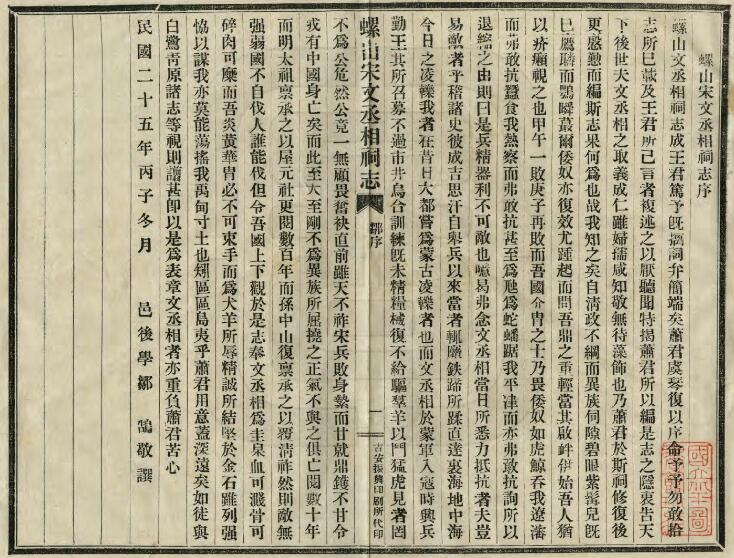 螺山宋文丞相祠志序
螺山文丞相祠志成王君篤予旣摛詞弁簡端矣蕭君虞琴復以序命予予勿敢拾
志所已載及王君所已言者複述之以厭聽聞特揭蕭君所以編是志之隱衷告天
下後世夫文丞相之取義成仁雖婦孺咸知敬無待藻飾也乃蕭君於斯祠修復後
更慼慼而編斯志果何爲也哉我知之矣自清政不綱而異族伺隙碧眼紫髯兒旣
已鷹瞵而鶚瞬蕞爾倭奴亦復效尤踵起而問吾鼎之重輕當其啟衅伊始吾人猶
以疥癩視之也甲午一敗庚子再敗而吾國介冑之士乃畏倭奴如虎鯨吞我遼瀋
而弗敢抗蠶食我熱察而弗敢抗甚至爲虺爲蛇蟠踞我平津而亦弗敢抗詢所以
退縮之由則曰是兵精器利不可敵也噫曷弗念文丞相當日所悉力抵抗者夫豈
易敵者乎稽諸史彼成吉思汗自舉兵以來當者輒隳鉄蹄所蹂直達裏海地中海
今日之凌轢我者在昔日大都嘗爲蒙古凌轢者也而文丞相於蒙軍入寇時興兵
勤王其所召募不過市井烏合訓練旣未精糧械復不給驅羣羊以鬥猛虎見者罔
螺山宋文丞相祠志
鄒序
一
吉安振興印刷所代印
不爲公危然公竟一無顧畏奮袂直前雖天不祚宋兵敗身縶而甘就鼎鑊不甘令
戎有中國身亡矣而此至大至剛不爲異族所屈撓之正氣不與之俱亡閱數十年
而明太祖禀承之以屋元社更閱數百年而孫中山復禀承之以覆清祚然則敵無
强弱國不自伐人誰能伐但令吾國上下觀於是志奉文丞相爲圭臬血可濺骨可
碎肉可糜而吾炎黃華冑必不可束手而爲犬羊所辱精誠所結堅於金石雖列强
協以謀我亦莫能蕩搖我禹甸寸土也矧區區島夷乎蕭君用意蓋深遠矣如徒與
白鷺靑原諸志等視則譾甚卽以是爲表章文丞相者亦重負蕭君苦心
民國二十五年丙子冬月　邑後學鄒　鵠敬譔